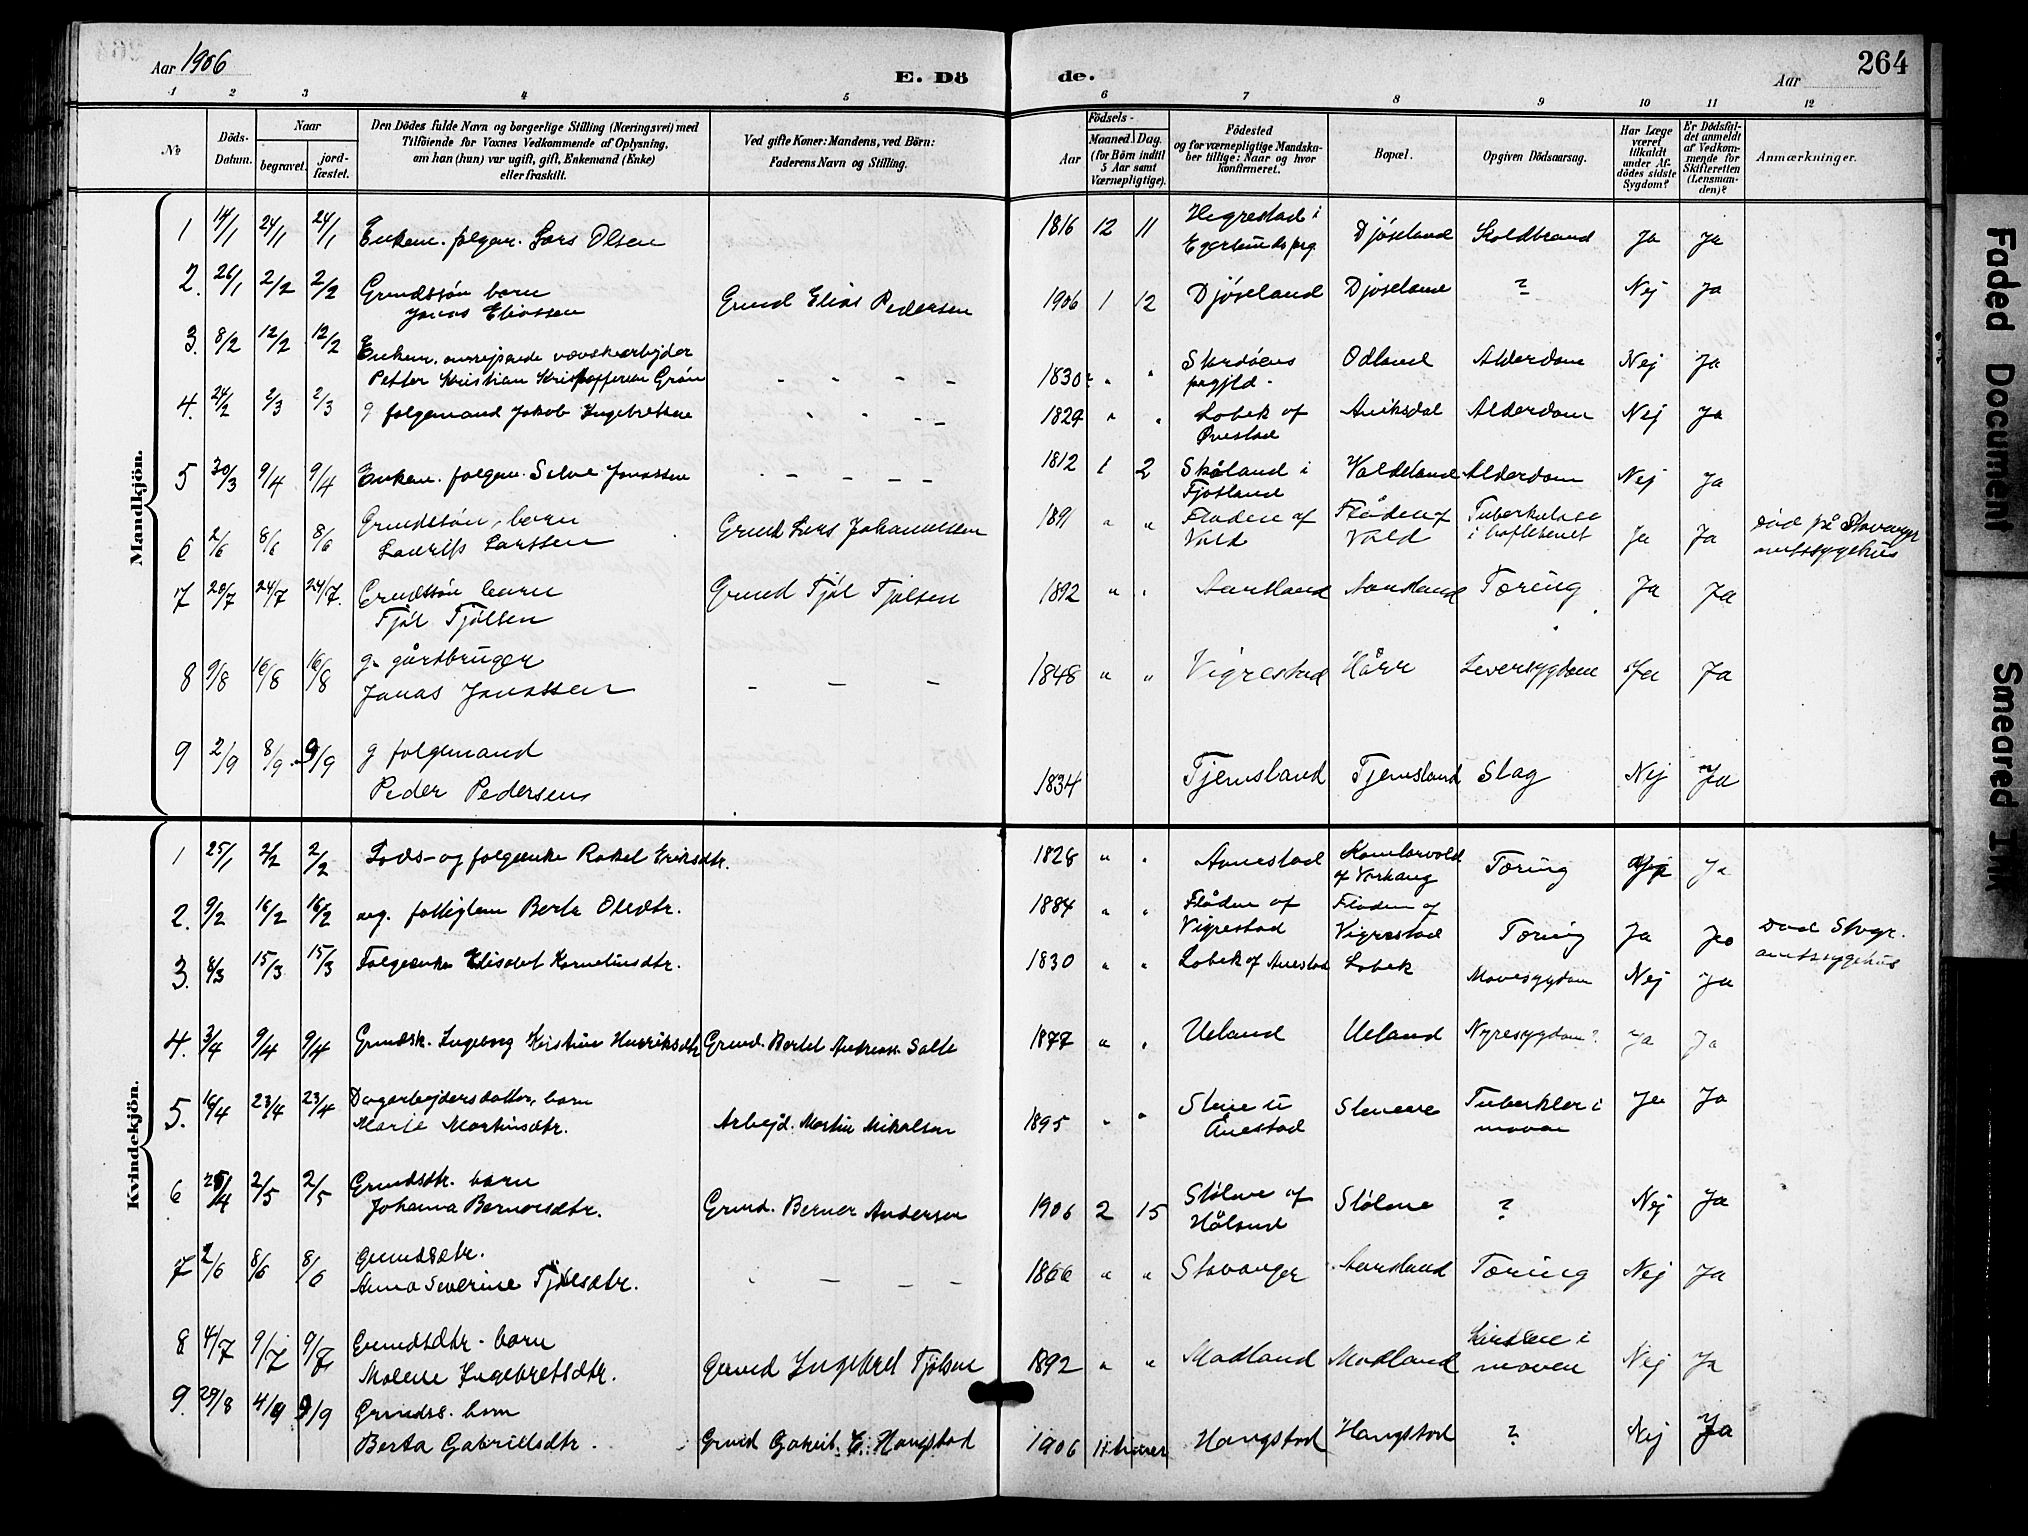 Aar 1906
E. Dö
de.
Aar
264
1 2 3 4 5 6 7 8 9 10 11 12
No
Döds-Datum.
Naar
begravet.
jord-fæstet.
Den Dödes fulde Navn og borgerlige Stilling (Næringsvei) med
Tilföiende for Voxnes Vedkommende af Oplysning,
om han (hun) var ugift, gift, Enkemand (Enke)
eller fraskilt.
Ved gifte Koner: Mandens, ved Börn:
Faderens Navn og Stilling.
Födsels-
Aar
Maaned. Dag.
(for Börn indtil
5 Aar samt
Værnepligtige).
Födested
og for værnepligtige Mandska-
ber tillige: Naar og hvor
konfirmeret.
Bopæl.
Opgiven Dödsaarsag.
Har Læge
været
tilkaldt
under Af-
dödes sidste
Sygdom?
Er Dödsfal-
det anmeldt
af Vedkom-
mende for
Skifteretten
(Lensman-
den)?
Anmærkninger.
Mandkjön.
1 14/1 24/1 24/1 Enkem. folgem. Lars Olsen 1816 12 11 Hegrestad i Egersunds prg Djöseland Koldbrand Ja Ja
2. 26/1 2/2 2/2 Grmdssön barn
Jonas Eliassen Grmd Elias Pedersen 1906 1 12 Djöseland Djöseland ? Nej Ja
3. 8/2 12/2 12/2 Enkem. omreisende
Petter Kristian Kristoffersen Grön 1830 prgjld. Odland Alderdom Nej Ja
4. 24/2 2/3 2/3 g folgemand Jakob Ingebretsen 1829 " " Lobek af Ånestad Aniksdal Alderdom Nej Ja
5 30/3 9/4 9/4 Enkem. folgem. Jonassen 1812 1 2 Skåland i Fjotland Alderdom Nej Ja
6 2/6 8/6 8/6 Grmdssön, barn
Laurits Larssen Grmd Lars Johannessen 1891 " " Floden af Vold Flåden af Vold Tuberkulose i Ja Ja Död på Stavanger
amtssygehus
7 20/7 24/7 24/7. Grmdssön barn
Tjöl Tjölsen Grmd Tjöl Tjölsen 1892 " " Aarsland Aarsland Tæring Ja Ja
8 9/8 16/8 16/8 g. gårdbruger
Jonas Jonassen 1848 " " Vigrestad Hårr Leversygdom Ja Ja
9 2/9 8/9 9/9 g folgemand
Peder Pedersen 1834 Tjemsland Tjemsland Slag Nej Ja
Kvindekjön.
1 25/1 2/2 2/2 Lods- og folgeenke Rakel Eriksdtr. 1828 " " Aanestad af Varhaug Tæring Ja
2. 9/2 16/2 16/2 ug. fattiglem Berte Olsdtr. 1884 " " Flåden af Vigrestad Floden af Vigrestad Tæring Ja Ja Död Stvgr.
amtssygehus
3. 8/3 15/3 15/3 Folgeenke Elisabet Korneliusdtr. 1830 " " Lobek af Anestad Lobek Mavesygdom Nej Ja
4. 3/4 9/4 9/4 Grmdsk. Ingeborg Kristine Henriksdtr Grmd. Bertel Andreass. Salte 1877 " " Ueland Ueland Nyresygdom? Ja Ja
5. 16/4 23/4 23/4 Dagarbejdersdatter, barn
Marie Martinsdtr. Arbejd. Martin Mikalsen 1895 " " Ånestad Tuberkler i maven Ja Ja
6 25/4 2/5 2/5 Grmdsdtr. barn
Johanna Bernersdtr. Grmd. Berner Andersen 1906 2 15 Stölene af Stölene ? Nej Ja
7 2/6 8/6 8/6 Grmdsdtr.
Anna Severine Tjölsdtr. 1866 " " Stavanger Aarsland Tæring Nej Ja
8 4/7 9/7 9/7 Grmdsdtr. barn
Malene Ingebretsdtr. Grmd Ingebret Tjölsen 1892 " " Modland Modland i maven Nej Ja
9. 29/8 4/9 9/9 Grmds. barn
Berta Gabrielsdtr. Grmd Gabriel E. Haugstad 1906 Haugstad Haugstad ? Nej Ja
Faded Document
Smeared Ink